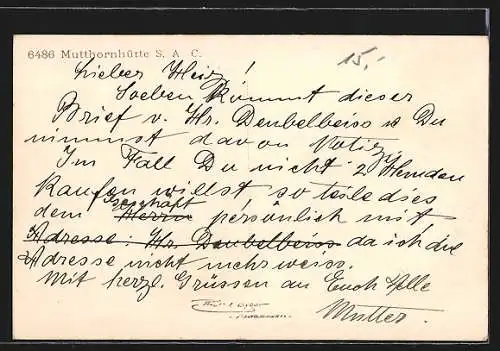 6486 Mutthornhütte S. A. C.
15.-
Lieber Heiz!
Soeben kommt dieser
Brief v. Hr. Deubelbeiss u Du
nimmst davon Notiz,
Im Fall Du nicht 2 Hemden
kaufen willst so teile dies
Geschäft
dem Herrn persönlich mit,
Adresse: Hr. Deubelbeiss da ich die
Adresse nicht mehr weiss.
Mit herzl. Grüssen an Euch Alle
Mutter.